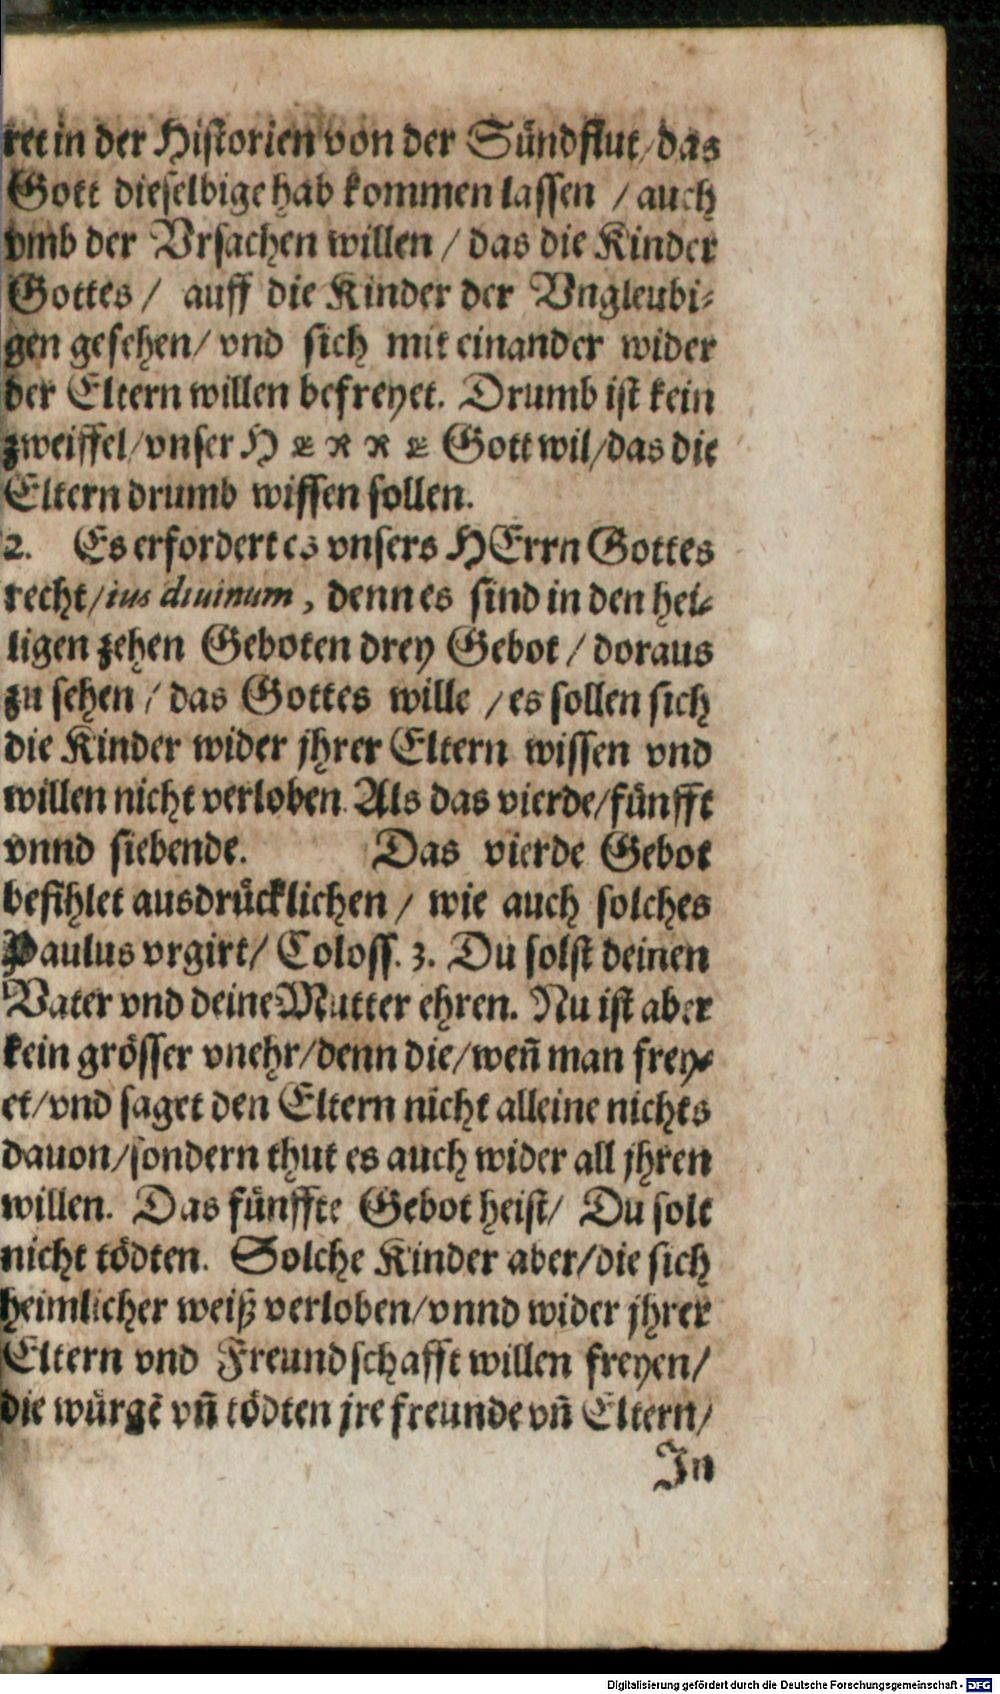 ret in der Historien von der Sündflut/das
Gott dieselbige hab kommen lassen / auch
vmb der Vrsachen willen / das die Kinder
Gottes / auff die Kinder der Vngleubi⸗
gen gesehen/ vnd sich mit einander wider
der Eltern willen befreyet. Drumb ist kein
zweiffel/vnser HERRE Gott wil/das die
Eltern drumb wissen sollen.
2. Es erfordert es vnsers HErrn Gottes
recht/ius diuinum, denn es sind in den hei⸗
ligen zehen Geboten drey Gebot / doraus
zu sehen / das Gottes wille / es sollen sich
die Kinder wider jhrer Eltern wissen vnd
willen nicht verloben. Als das vierde/fünfft
vnnd siebende. Das vierde Gebot
befihlet ausdrücklichen / wie auch solches
Paulus vrgirt/ Coloss. 3. Du solst deinen
Vater vnd deine Mutter ehren. Nu ist aber
kein grösser vnehr/denn die/weñ man frey⸗
et/vnd saget den Eltern nicht alleine nichts
dauon/sondern thut es auch wider all jhren
willen. Das fünffte Gebot heist/ Du solt
nicht tödten. Solche Kinder aber/die sich
heimlicher weiß verloben/vnnd wider jhrer
Eltern vnd Freundschafft willen freyen/
die würgẽ vñ tödten jre freunde vñ Eltern/
In
Digitalisierung gefördert durch die Deutsche Forschungsgemeinschaft - DFG